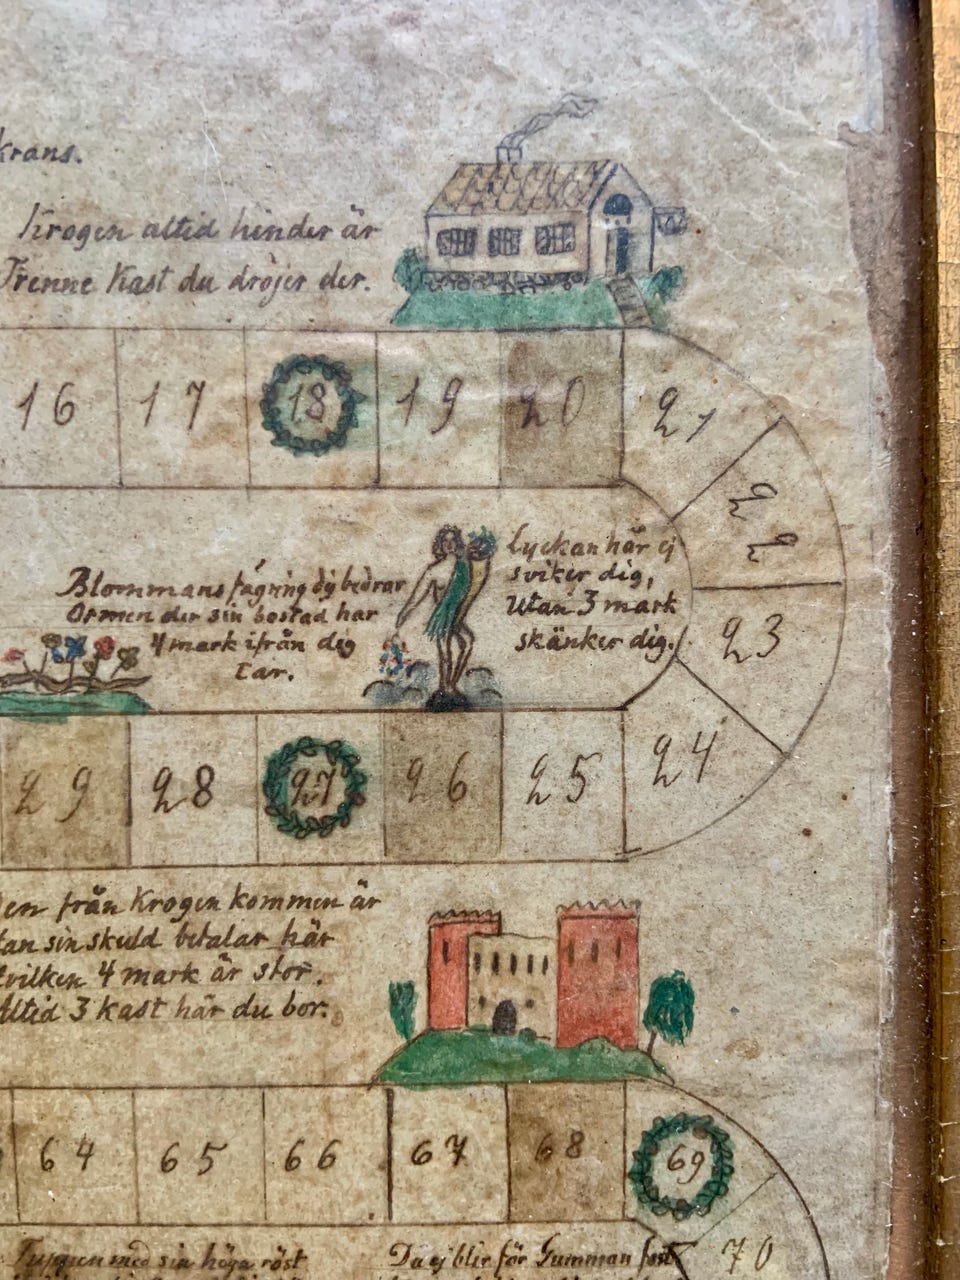 krans.
Krogen altid hinder är
Trenne Kast du dröjer der.
16 17 18 19 20 21
22
23
Blommans fägring dig bedrar
Ormen der sin bostad har
4 mark ifrån dig
tar.
Lyckan här ej
sviker dig,
Utan 3 mark
skänker dig.
29 28 27 26 25 24
från Krogen kommen är
sin skuld betalar här
hvilken 4 mark är stor.
Altid 3 kast här du bor.
64 65 66 67 68 69
70
Tuppen med sin höga röst
Du ej blir för Gumman